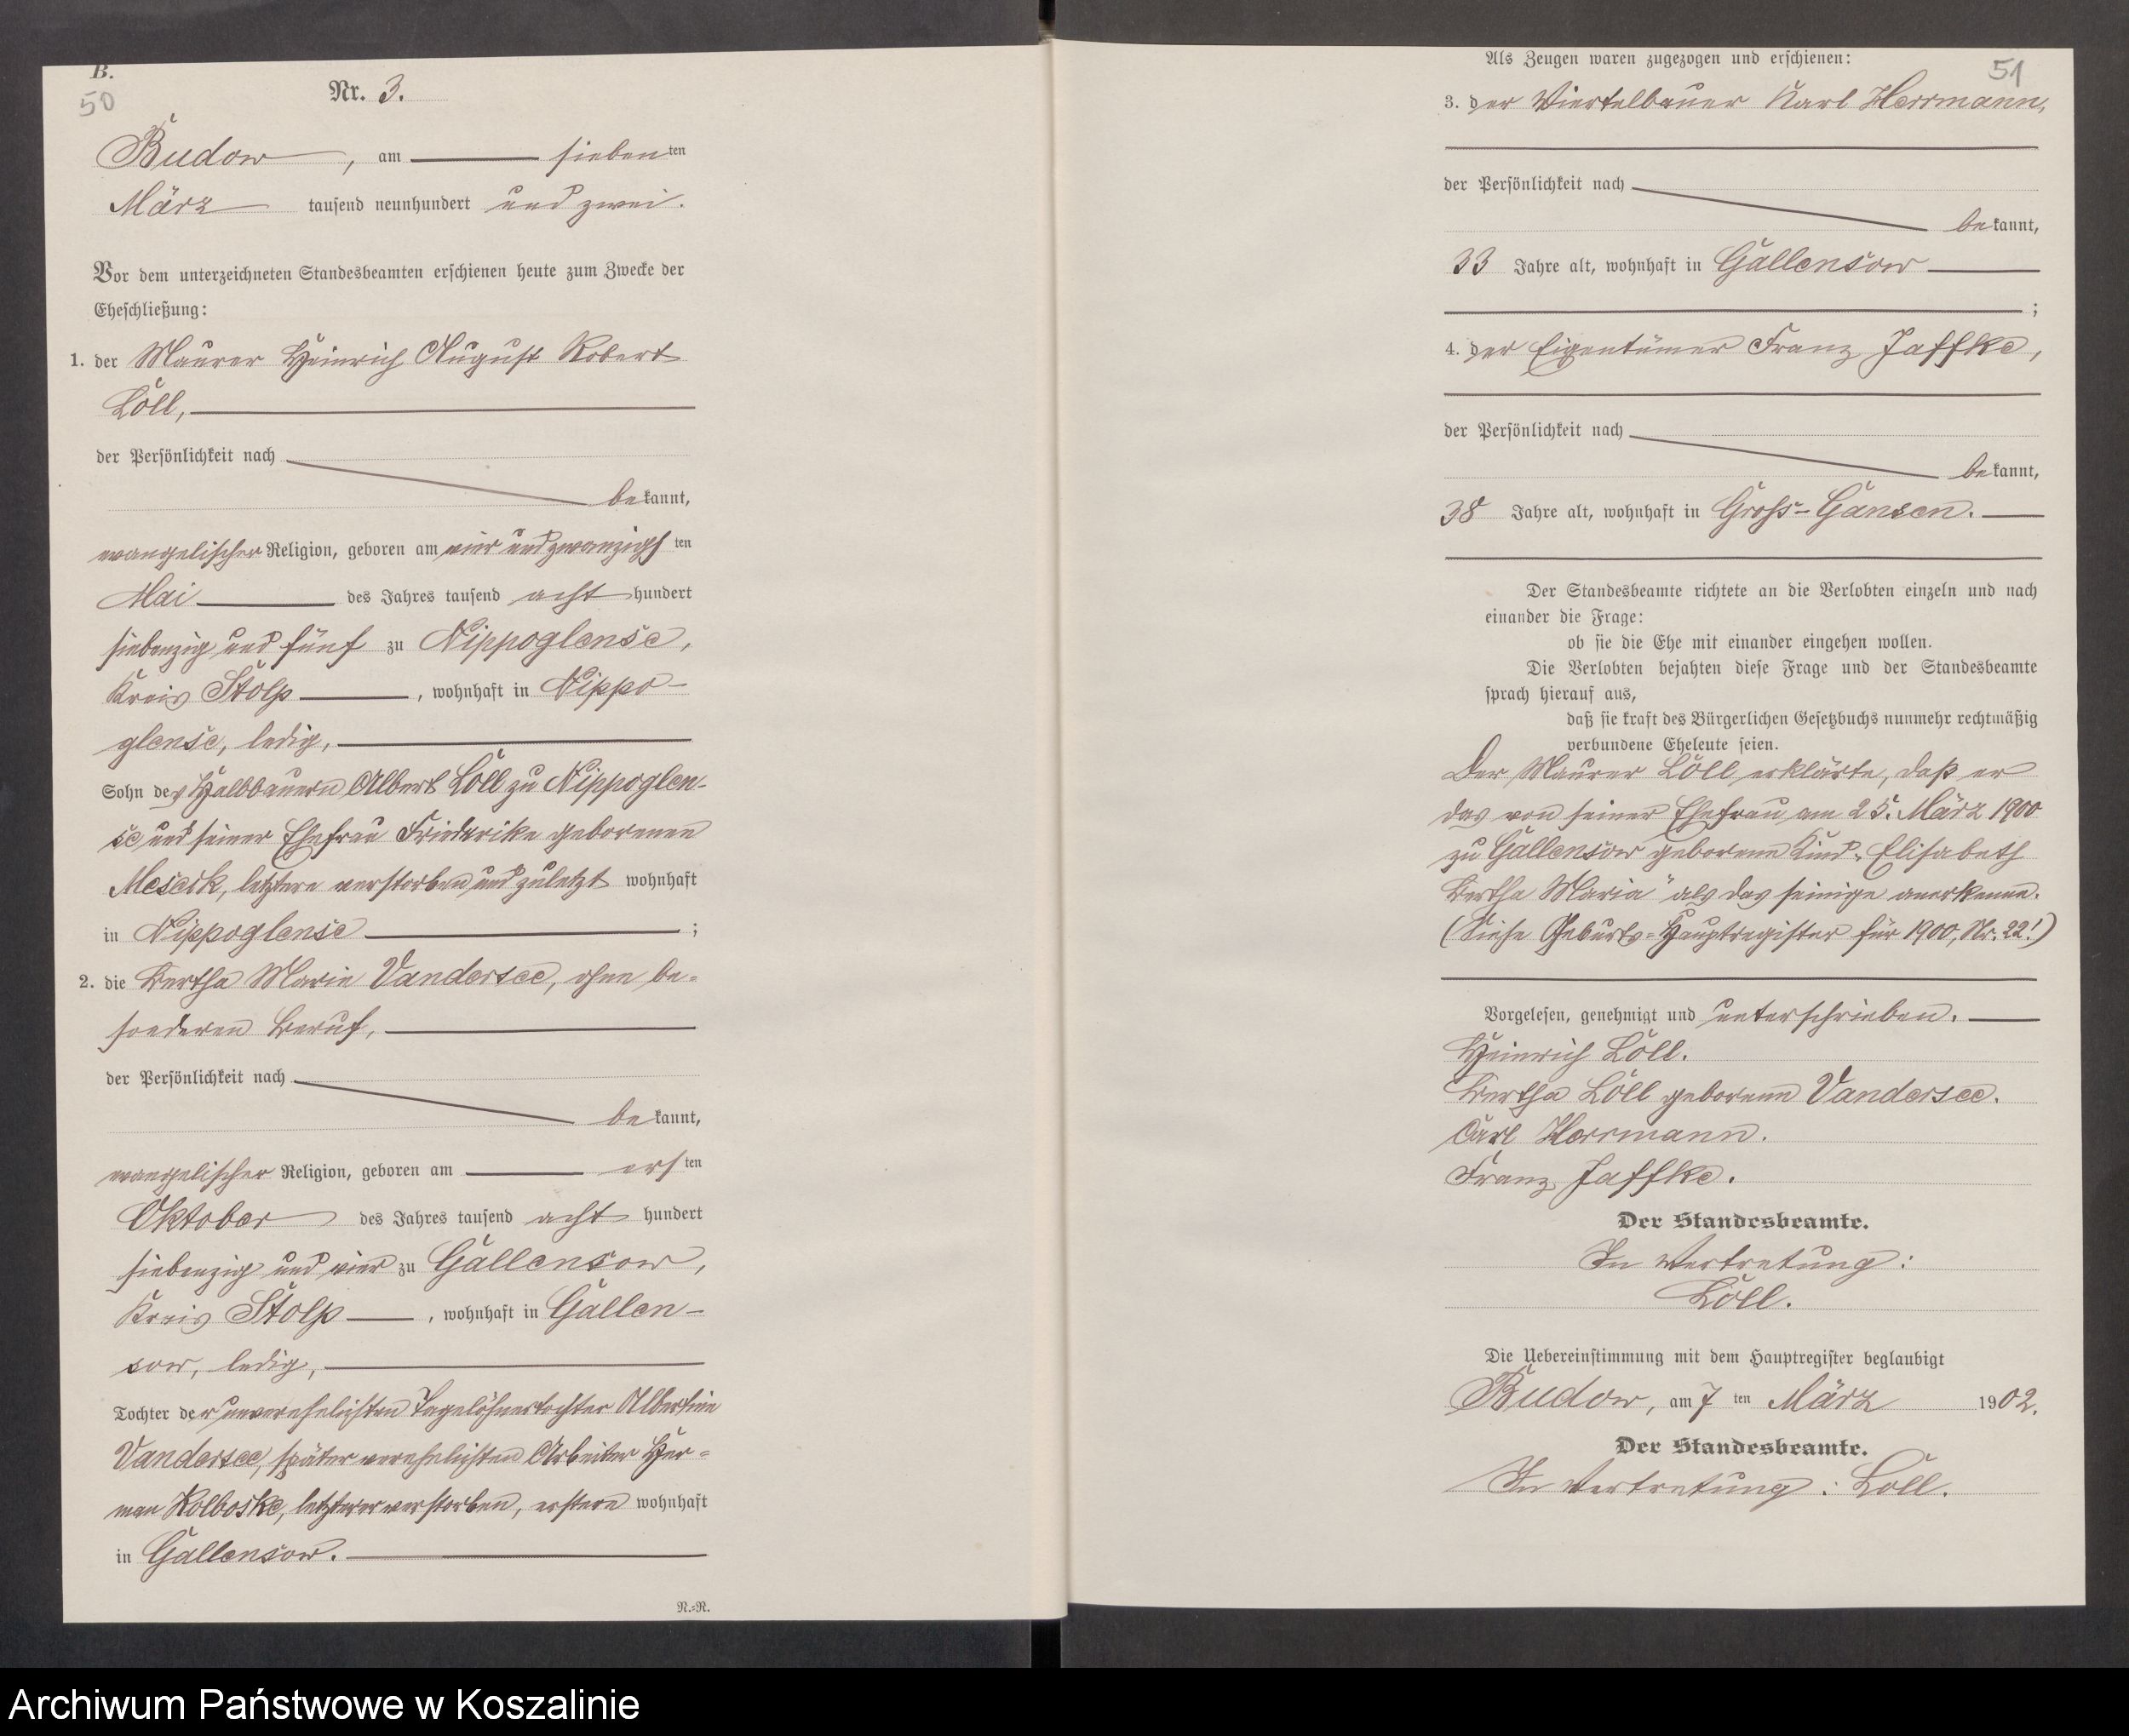 B.
50
Nr. 3.
Budow, am siebenten
März tausend neunhundert und zwei.
Vor dem unterzeichneten Standesbeamten erschienen heute zum Zwecke der
Eheschließung:
1. der Maurer Heinrich August Robert
Löll,
der Persönlichkeit nach
bekannt,
evangelischer Religion, geboren am vier und zwanzigsten
Mai des Jahres tausend achthundert
siebenzig und fünf zu Nippoglense,
Kreis Stolp, wohnhaft in Nippo-
glense, ledig,
Sohn des Halbbauern Albert Löll zu Nippoglen-
se und seiner Ehefrau Friederike geborenen
Meseck, letztere verstorben und zuletzt wohnhaft
in Nippoglense;
2. die Bertha Marie Vandersee, ohne be-
sonderen Beruf,
der Persönlichkeit nach
bekannt,
evangelischer Religion, geboren am ersten
Oktober des Jahres tausend acht hundert
siebenzig und vier zu Gallensow,
Kreis Stolp, wohnhaft in Gallen-
sow, ledig,
Tochter der unverehelichten Tagelöhnertochter Albertine
Vandersee, später verehelichten Arbeiter Her-
man Kolboske, letzterer verstorben, erstere wohnhaft
in Gallensow.
N.=N.
51
Als Zeugen waren zugezogen und erschienen:
3. der Viertelbauer Karl Herrmann,
der Persönlichkeit nach
bekannt,
33 Jahre alt, wohnhaft in Gallensow
;
4. der Eigentümer Franz Jaffke,
der Persönlichkeit nach
bekannt,
38 Jahre alt, wohnhaft in Gross-Gansen.
Der Standesbeamte richtete an die Verlobten einzeln und nach
einander die Frage:
ob sie die Ehe mit einander eingehen wollen.
Die Verlobten bejahten diese Frage und der Standesbeamte
sprach hierauf aus,
daß sie kraft des Bürgerlichen Gesetzbuchs nunmehr rechtmäßig
verbundene Eheleute seien.
Der Maurer Löll erklärte, daß er
das von seiner Ehefrau am 25. März 1900
zu Gallensow geborene Kind „Elisabeth
Bertha Maria“ als das seinige anerkenne.
(Siehe Geburts-Hauptregister für 1900, Nr. 22!)
Vorgelesen, genehmigt und unterschrieben.
Heinrich Löll.
Bertha Löll geborene Vandersee.
Carl Herrmann.
Franz Jaffke.
Der Standesbeamte.
In Vertretung:
Löll.
Die Uebereinstimmung mit dem Hauptregister beglaubigt
Budow, am 7 ten März 1902.
Der Standesbeamte.
In Vertretung: Löll.
Archiwum Państwowe w Koszalinie